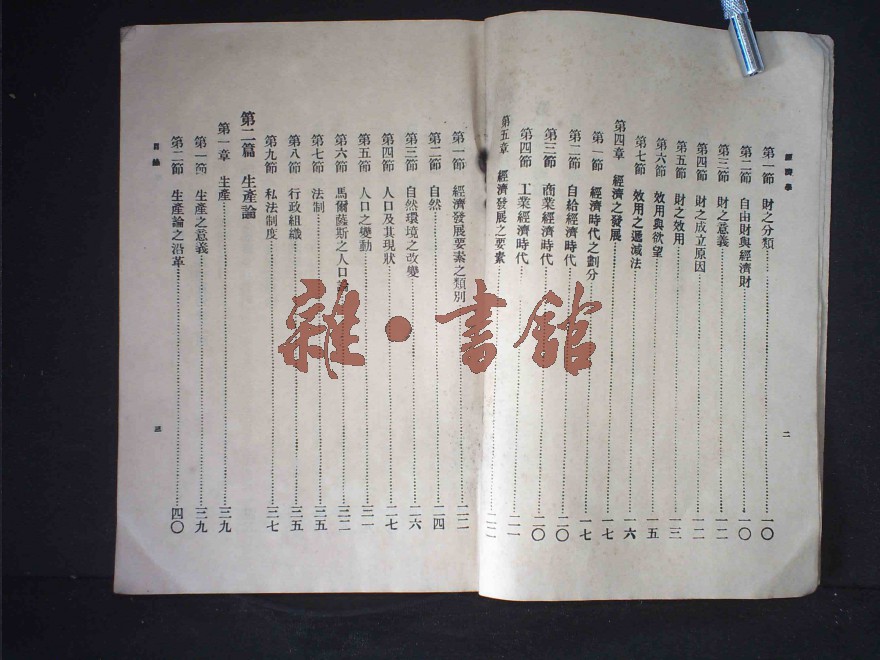 經濟學
第一節 財之分類 一〇
第二節 自由財與經濟財 一〇
第三節 財之意義 一二
第四節 財之成立原因 一二
第五節 財之效用 一三
第六節 效用與欲望 一五
第七節 效用之遞減法 一六
第四章 經濟之發展 一七
第一節 經濟時代之劃分 一七
第二節 自給經濟時代 二〇
第三節 商業經濟時代 二〇
第四節 工業經濟時代 二一
第五章 經濟發展之要素 二二
二
第一節 經濟發展要素之類別 二二
第二節 自然 二四
第三節 自然環境之改變 二六
第四節 人口及其現狀 二七
第五節 人口之變動 三一
第六節 馬爾薩斯之人口論 三二
第七節 法制 三五
第八節 行政組織 三五
第九節 私法制度 三七
第二篇 生產論
第一章 生產 三九
第一節 生產之意義 三九
第二節 生產論之沿革 四〇
目錄
三
雜·書館